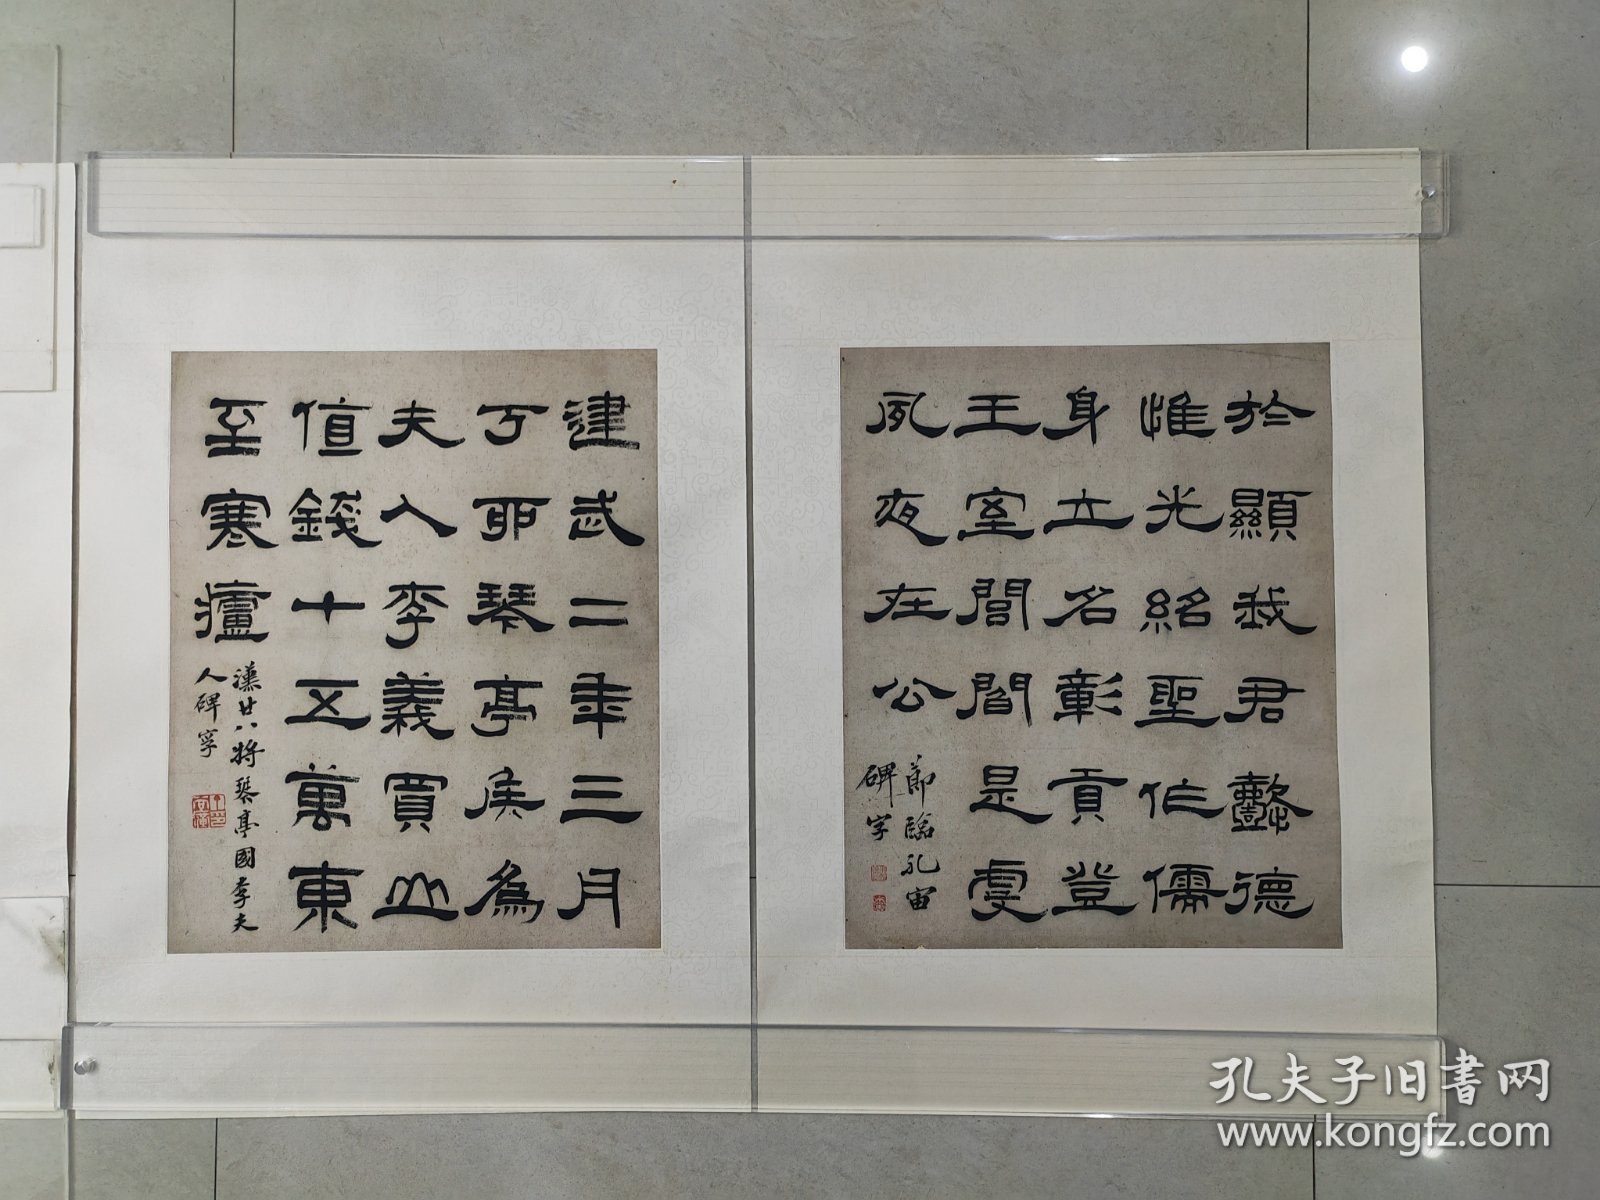 於顯我君懿德
惟光紹聖作儒
身立名彰貢登
王室閭閻是虔
夙夜在公
節臨孔宙
碑字
建武二年三月
丁卯琴亭侯為
夫人李義買山
值錢十五萬東
至寒廬
漢廿八將琴亭國李夫
人碑字
孔夫子旧书网
www.kongfz.com